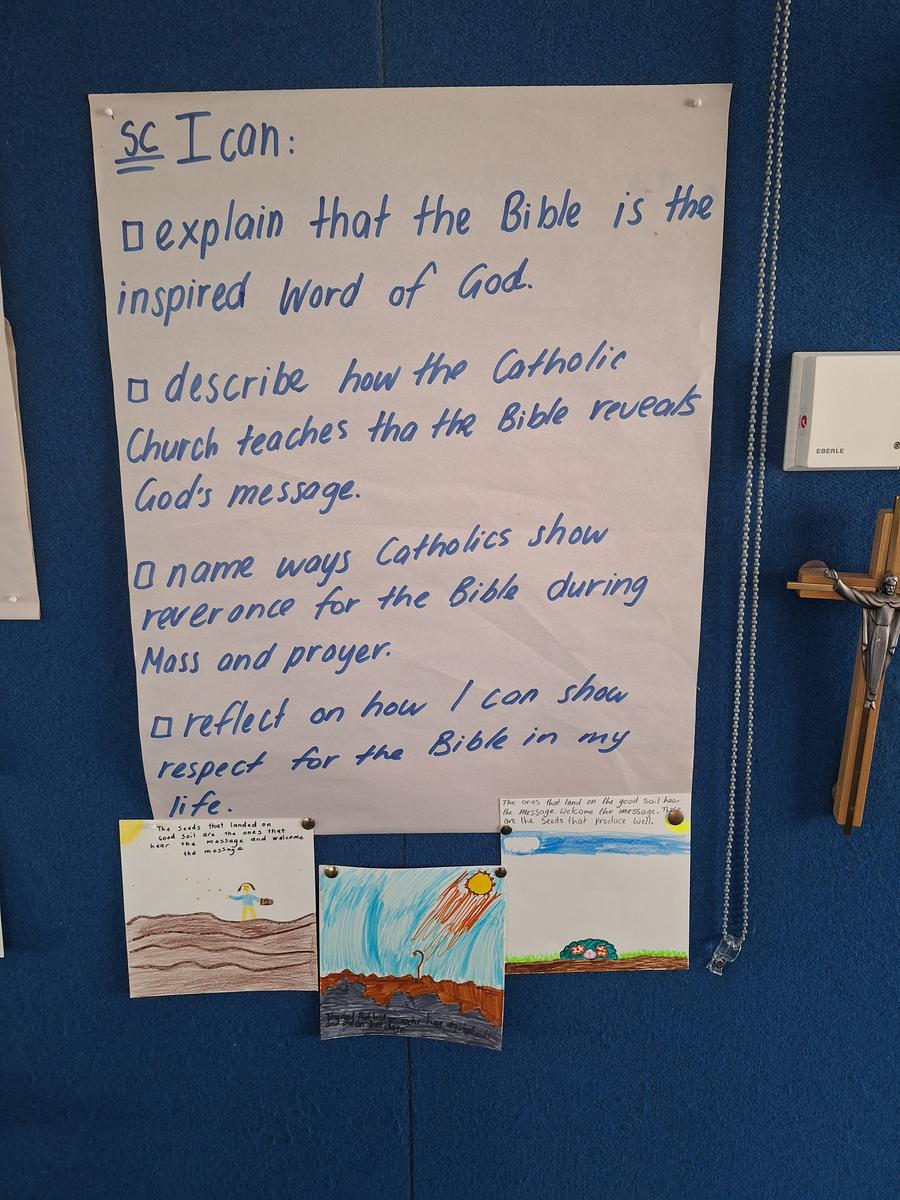 SC I can:
explain that the Bible is the
inspired Word of God.
describe how the Catholic
Church teaches tha the Bible reveals
God's message.
name ways Catholics show
reverance for the Bible during
Mass and prayer.
reflect on how I can show
respect for the Bible in my
life.
EBERLE
The Seeds that landed on
Good Soil are the ones that
hear the message and welcome
the message
and on hot days
The ones that land on the good soil hear
the message. Welcome the message. These
are the Seeds that produce well.